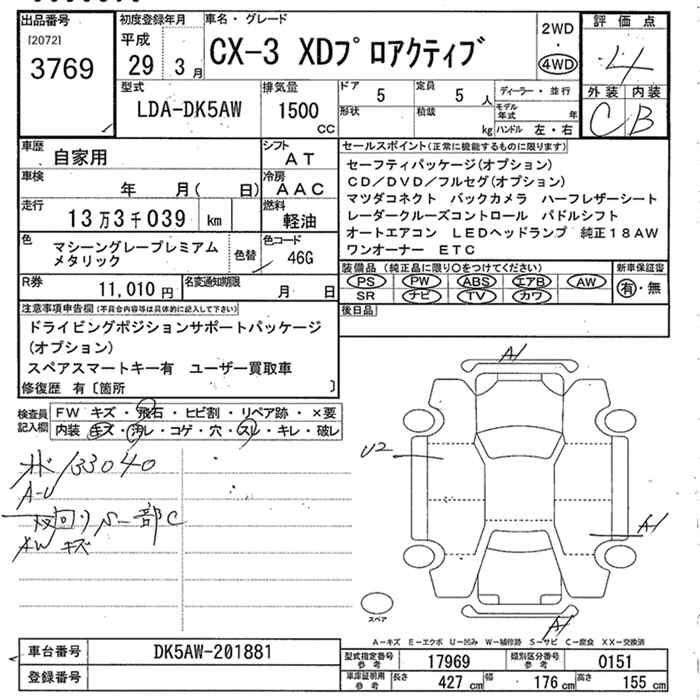 出品番号
[2072]
3769
初度登録年月
平成
29年 3月
車名・グレード
CX-3 XDプロアクティブ
2WD
・
4WD
評価点
4
外装 内装
C B
型式
LDA-DK5AW
排気量
1500
cc
ドア
5
定員
5 人
形状
積載
kg
ディーラー・並行
モデル年式 年
ハンドル 左・右
車歴
自家用
シフト
AT
車検
年 月( 日)
冷房
AAC
走行
13万3千039 km
燃料
軽油
色
マシーングレープレミアム
メタリック
色替
色コード
46G
R券
11,010円
名変通知期限
月 日
セールスポイント(正常に機能するものに限ります)
セーフティパッケージ(オプション)
CD/DVD/フルセグ(オプション)
マツダコネクト バックカメラ ハーフレザーシート
レーダークルーズコントロール パドルシフト
オートエアコン LEDヘッドランプ 純正18AW
ワンオーナー ETC
装備品(純正品に限り○をつけてください)
PS PW ABS エアB AW
SR ナビ TV カワ
新車保証書
有・無
後日品
注意事項申告欄(不具合内容等は具体的に記入して下さい)
ドライビングポジションサポートパッケージ
(オプション)
スペアスマートキー有 ユーザー買取車
修復歴 有〔箇所 〕
検査員
記入欄
FW キズ・飛石・ヒビ割・リペア跡・×要
内装 キズ・汚レ・コゲ・穴・スレ・キレ・破レ
133040
A-U
回り 一部C
AW キズ
A1
U2
A1
A1
スペア
A-キズ E-エクボ U-凹み W-補修跡 S-サビ C-腐食 XX-交換済
車台番号
DK5AW-201881
登録番号
型式指定番号
参考
17969
類別区分番号
参考
0151
車庫証明用
参考
長さ 427 cm 幅 176 cm 高さ 155 cm